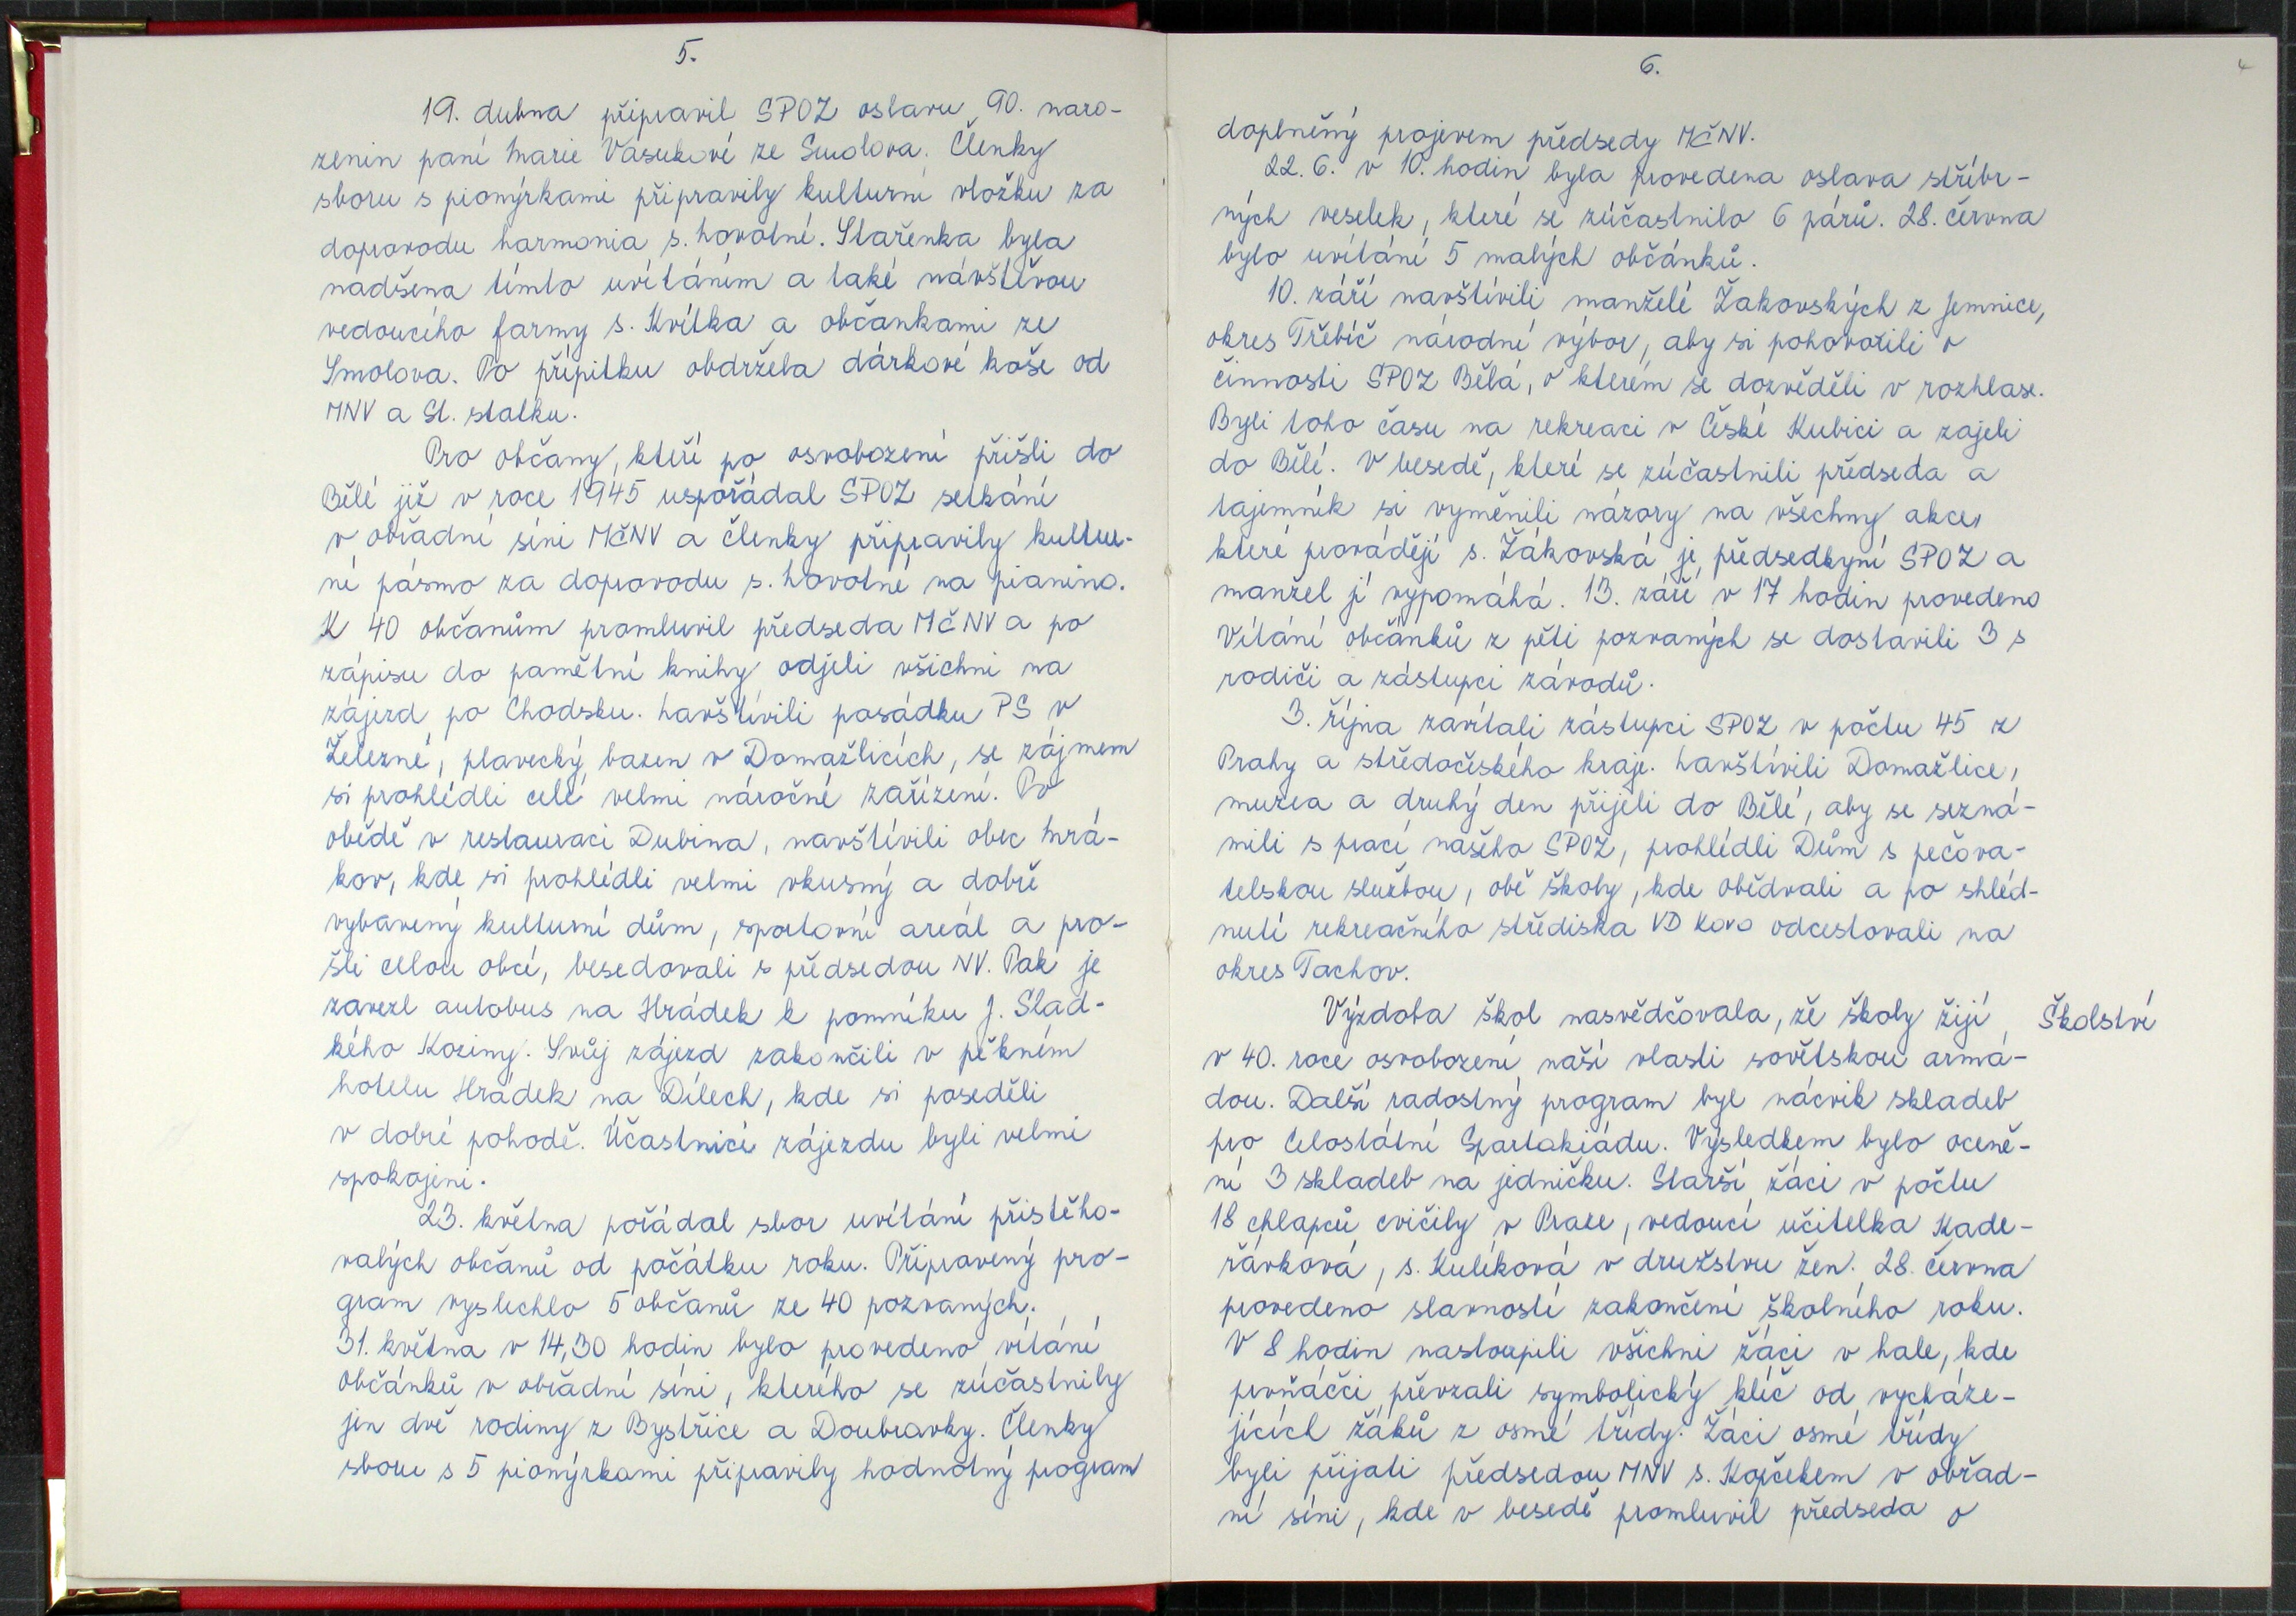 5.
19. dubna připravil SPOZ oslavu 90. naro-
zenin paní Marie Vasukové ze Smolova. Členky
sboru s pionýrkami připravily kulturní vložku za
doprovodu harmonia s. Novotné. Stařenka byla
nadšena tímto uvítáním a také návštěvou
vedoucího farmy s. Kvítka a občankami ze
Smolova. Po přípitku obdržela dárkové koše od
MNV a St. statku.
Pro občany, kteří po osvobození přišli do
Bělé již v roce 1945 uspořádal SPOZ setkání
v obřadní síni MěNV a členky připravily kultur-
ní pásmo za doprovodu s. Novotné na pianino.
K 40 občanům promluvil předseda MěNV a po
zápisu do pamětní knihy odjeli všichni na
zájezd po Chodsku. Navštívili posádku PS v
Železné, plavecký bazen v Domažlicích, se zájmem
si prohlédli celé velmi náročné zařízení. Po
obědě v restauraci Dubina, navštívili obec Mrá-
kov, kde si prohlédli velmi vkusný a dobře
vybavený kulturní dům, sportovní areál a pro-
šli celou obcí, besedovali s předsedou NV. Pak je
zavezl autobus na Hrádek k pomníku J. Slad-
kého Koziny. Svůj zájezd zakončili v pěkném
hotelu Hrádek na Dílech, kde si poseděli
v dobré pohodě. Účastnící zájezdu byli velmi
spokojeni.
23. května pořádal sbor uvítání přistěho-
valých občanů od počátku roku. Připravený pro-
gram vyslechlo 5 občanů ze 40 pozvaných.
31. května v 14,30 hodin bylo provedeno vítání
občánků v obřadní síni, kterého se zúčastnily
jen dvě rodiny z Bystřice a Doubravky. Členky
sboru s 5 pionýrkami připravily hodnotný program
6.
4
doplněný projevem předsedy MěNV.
22. 6. v 10. hodin byla provedena oslava stříbr-
ných veselek, které se zúčastnilo 6 párů. 28. června
bylo uvítání 5 malých občánků.
10. září navštívili manželé Žakovských z Jemnice,
okres Třebíč národní výbor, aby si pohovořili o
činnosti SPOZ Bělá, o kterém se dozvěděli v rozhlase.
Byli toho času na rekreaci v České Kubici a zajeli
do Bělé. V besedě, které se zúčastnili předseda a
tajemník si vyměnili názory na všechny akce,
které provádějí s. Žákovská je předsedkyní SPOZ a
manžel jí vypomáhá. 13. září v 17 hodin provedeno
Vítání občánků z pěti pozvaných se dostavili 3 s
rodiči a zástupci závodů.
3. října zavítali zástupci SPOZ v počtu 45 z
Prahy a středočeského kraje. Navštívili Domažlice,
muzea a druhý den přijeli do Bělé, aby se sezná-
mili s prací našeho SPOZ, prohlédli Dům s pečova-
telskou službou, obě školy, kde obědvali a po shléd-
nutí rekreačního střediska VD Kovo odcestovali na
okres Tachov.
Výzdoba škol nasvědčovala, že školy žijí
Školství
v 40. roce osvobození naší vlasti sovětskou armá-
dou. Další radostný program byl nácvik skladeb
pro Celostátní Spartakiádu. Výsledkem bylo oceně-
ní 3 skladeb na jedničku. Starší žáci v počtu
18 chlapců cvičily v Praze, vedoucí učitelka Kade-
řávková, s. Kulíková v družstvu žen. 28. června
provedeno slavností zakončení školního roku.
V 8 hodin nastoupili všichni žáci v hale, kde
prvňáčci převzali symbolický klíč od vycháze-
jících žáků z osmé třídy. Žáci osmé třídy
byli přijati předsedou MNV s. Kopčekem v obřad-
ní síni, kde v besedě promluvil předseda o